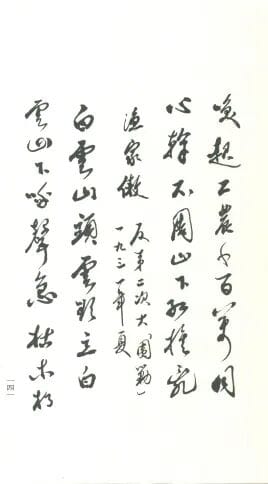 唤起工农千百万同
心干不周山下红旗乱
渔家傲 反第二次大“围剿”
一九三一年夏
白云山头云欲立白
云山下呼声急枯木朽
一四一